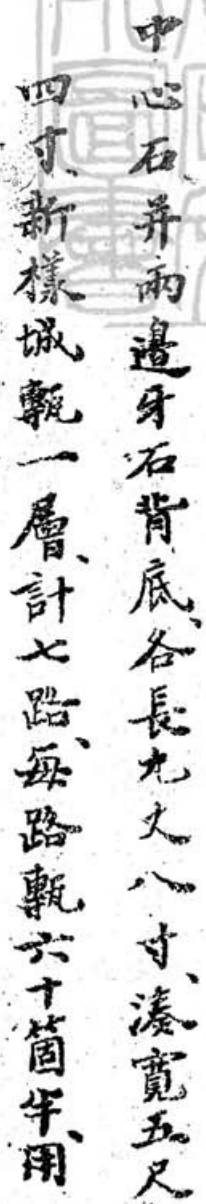 中心石、并兩邊牙石背底、各長九丈八寸、湊寬五尺
四寸、新樣城甎一層、計七路、每路甎六十箇半、用